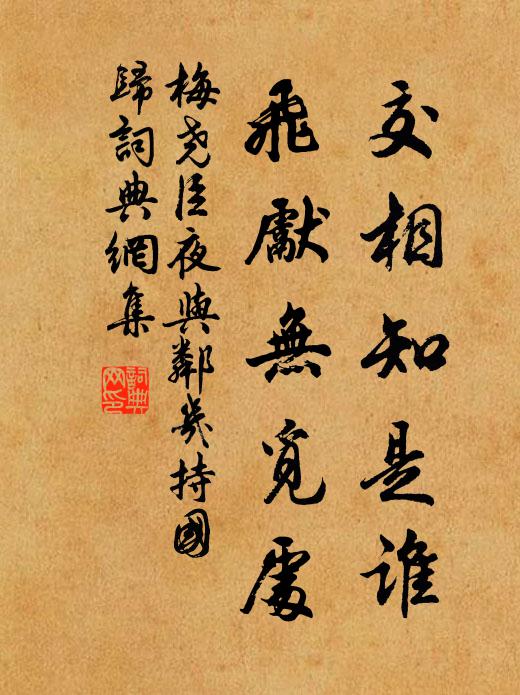 交相知是谁
飛獻無覓處
梅尧臣夜與鄰幾持國
歸詞典網集
詞典网印